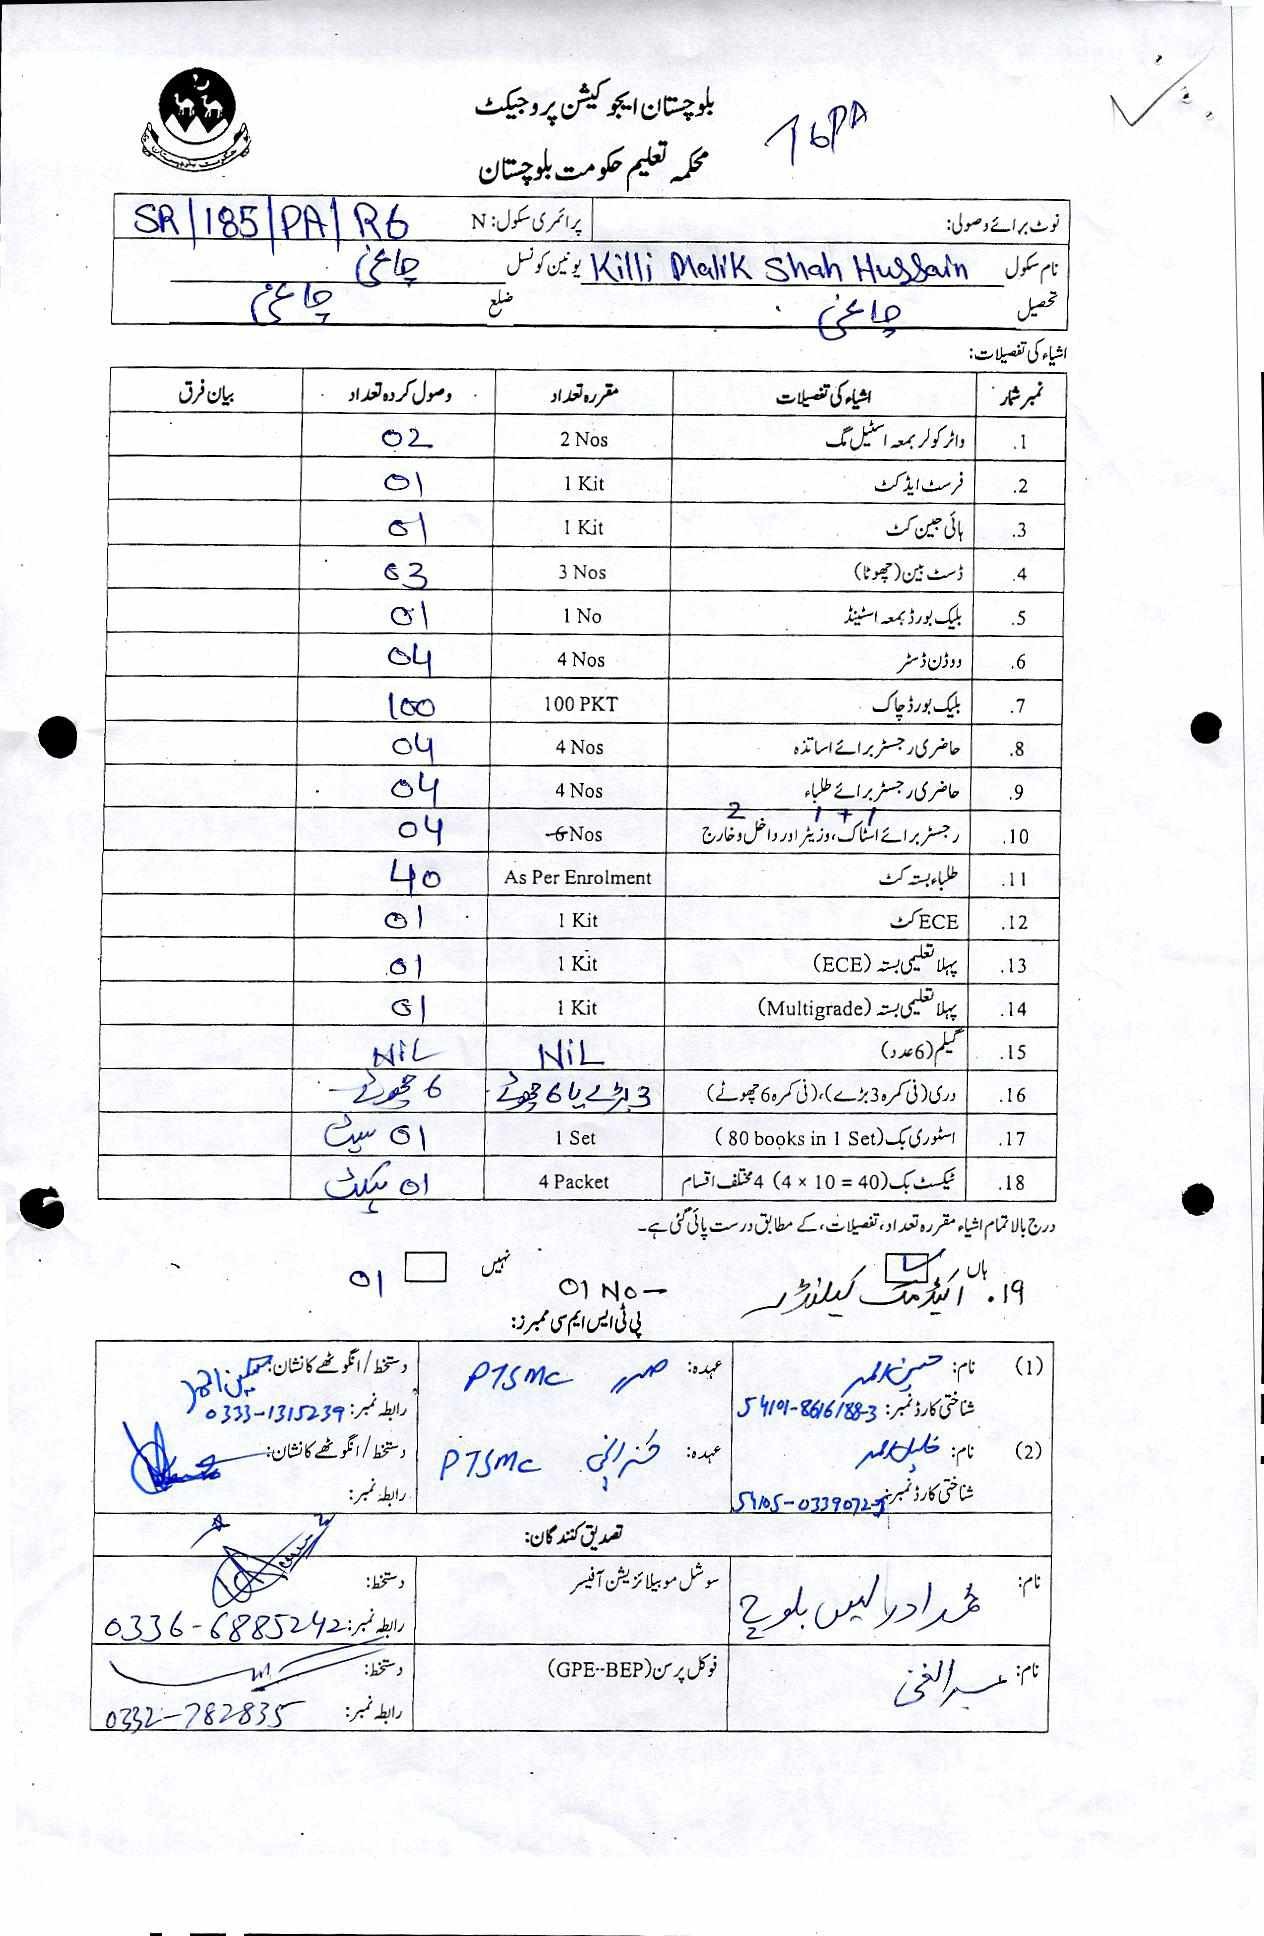 بلوچستان ایجوکیشن پروجیکٹ
محکمہ تعلیم حکومت بلوچستان
حکومت بلوچستان
نوٹ برائے وصولی: پرائمری سکول: N SR/185/PA/R6
نام سکول Killi Malik Shah Hussain یونین کونسل چاغی
تحصیل چاغی ضلع چاغی
اشیاء کی تفصیلات:
نمبر شمار اشیاء کی تفصیلات مقررہ تعداد وصول کردہ تعداد بیان فرق
1. واٹر کولر بمعہ اسٹیل مگ 2 Nos 02
2. فرسٹ ایڈ کٹ 1 Kit 01
3. ہائی جین کٹ 1 Kit 01
4. ڈسٹ بین (چھوٹا) 3 Nos 03
5. بلیک بورڈ بمعہ اسٹینڈ 1 No 01
6. ووڈن ڈسٹر 4 Nos 04
7. بلیک بورڈ چاک 100 PKT 100
8. حاضری رجسٹر برائے اساتذہ 4 Nos 04
9. حاضری رجسٹر برائے طلباء 4 Nos 04
2 1 + 1
10. رجسٹر برائے اسٹاک، وزیٹر اور داخل و خارج 6 Nos 04
11. طلباء بستہ کٹ As Per Enrolment 40
12. ECE کٹ 1 Kit 01
13. پہلا تعلیمی بستہ (ECE) 1 Kit 01
14. پہلا تعلیمی بستہ (Multigrade) 1 Kit 01
15. گیلم (6 عدد) NiL NiL
16. دری (فی کمرہ 3 بڑے)، (فی کمرہ 6 چھوٹے) 3 بڑے یا 6 چھوٹے 6 چھوٹے
17. اسٹوری بک (80 books in 1 Set) 1 Set 01 سیٹ
18. ٹیکسٹ بک (4 × 10 = 40) 4 مختلف اقسام 4 Packet 01 پیکٹ
درج بالا تمام اشیاء مقررہ تعداد، تفصیلات، کے مطابق درست پائی گئی ہے۔
ہاں نہیں
19. اکیڈمک کیلنڈر 01 No 01
پی ٹی ایس ایم سی ممبرز:
(1) نام: عہدہ: صدر PTSMC دستخط / انگوٹھے کا نشان:
شناختی کارڈ نمبر: 54101-8616188-3 رابطہ نمبر: 0333-1315239
(2) نام: خلیل احمد عہدہ: PTSMC دستخط / انگوٹھے کا نشان:
شناختی کارڈ نمبر: رابطہ نمبر:
تصدیق کنندگان:
نام: محمد ادریس بلوچ سوشل موبیلائزیشن آفیسر دستخط:
رابطہ نمبر: 0336-6885242
نام: عبدالغنی فوکل پرسن (GPE--BEP) دستخط:
رابطہ نمبر: 0332-782835